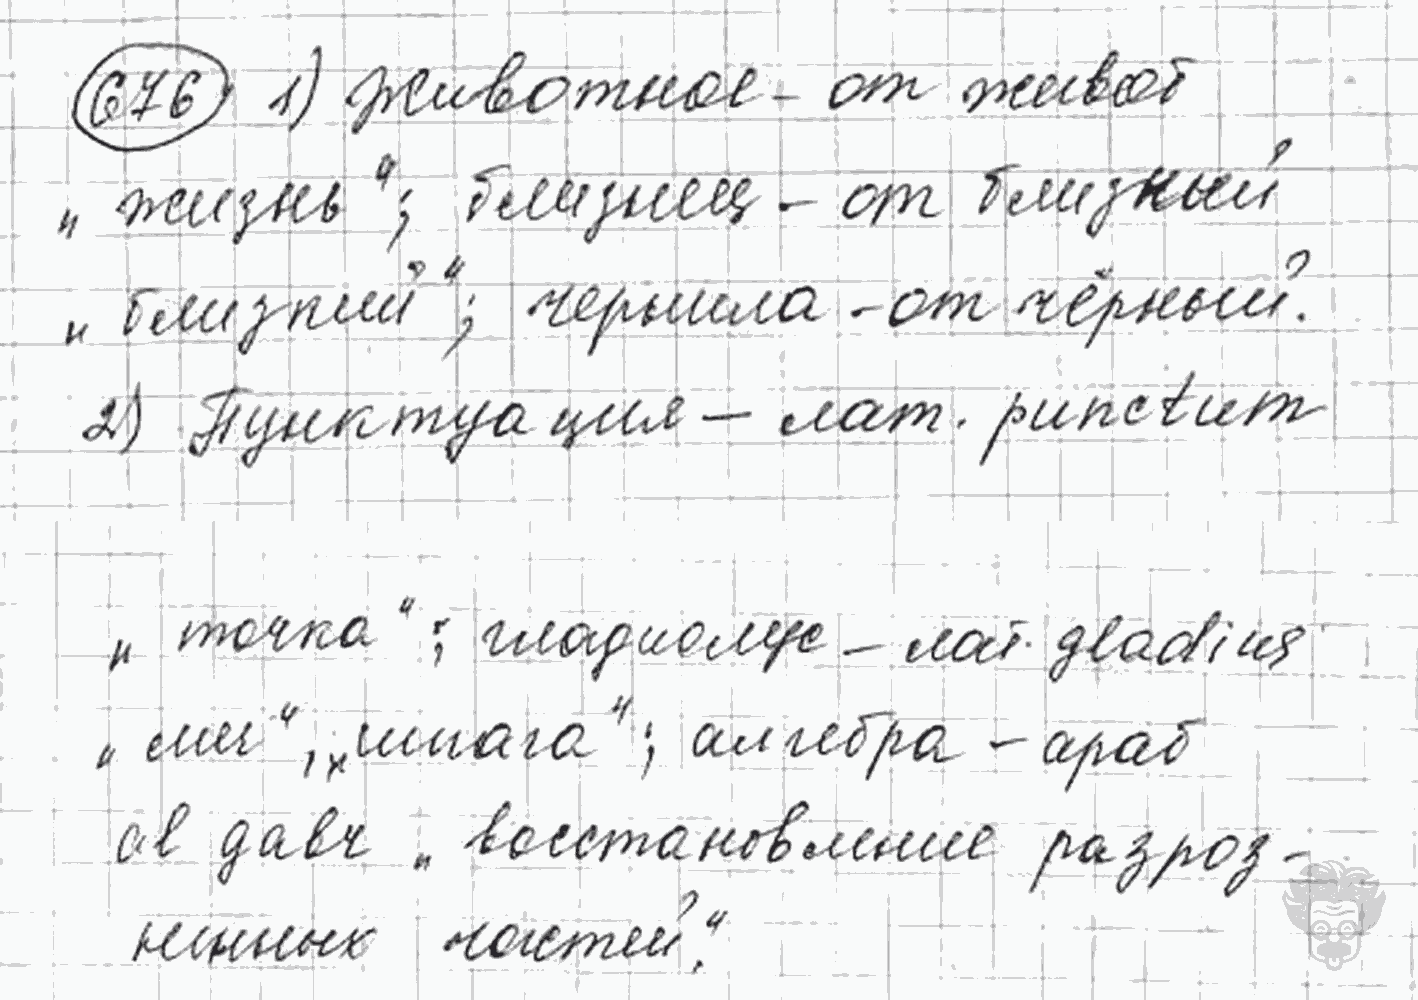 676 1) Животное - от живот
„жизнь"; близнец - от близный
„близкий"; чернила - от чёрный.
2) Пунктуация - лат. punctum
„точка"; гладиолус - лат. gladius
„меч", „шпага"; алгебра - араб
ав давч „восстановление разроз-
ненных частей."